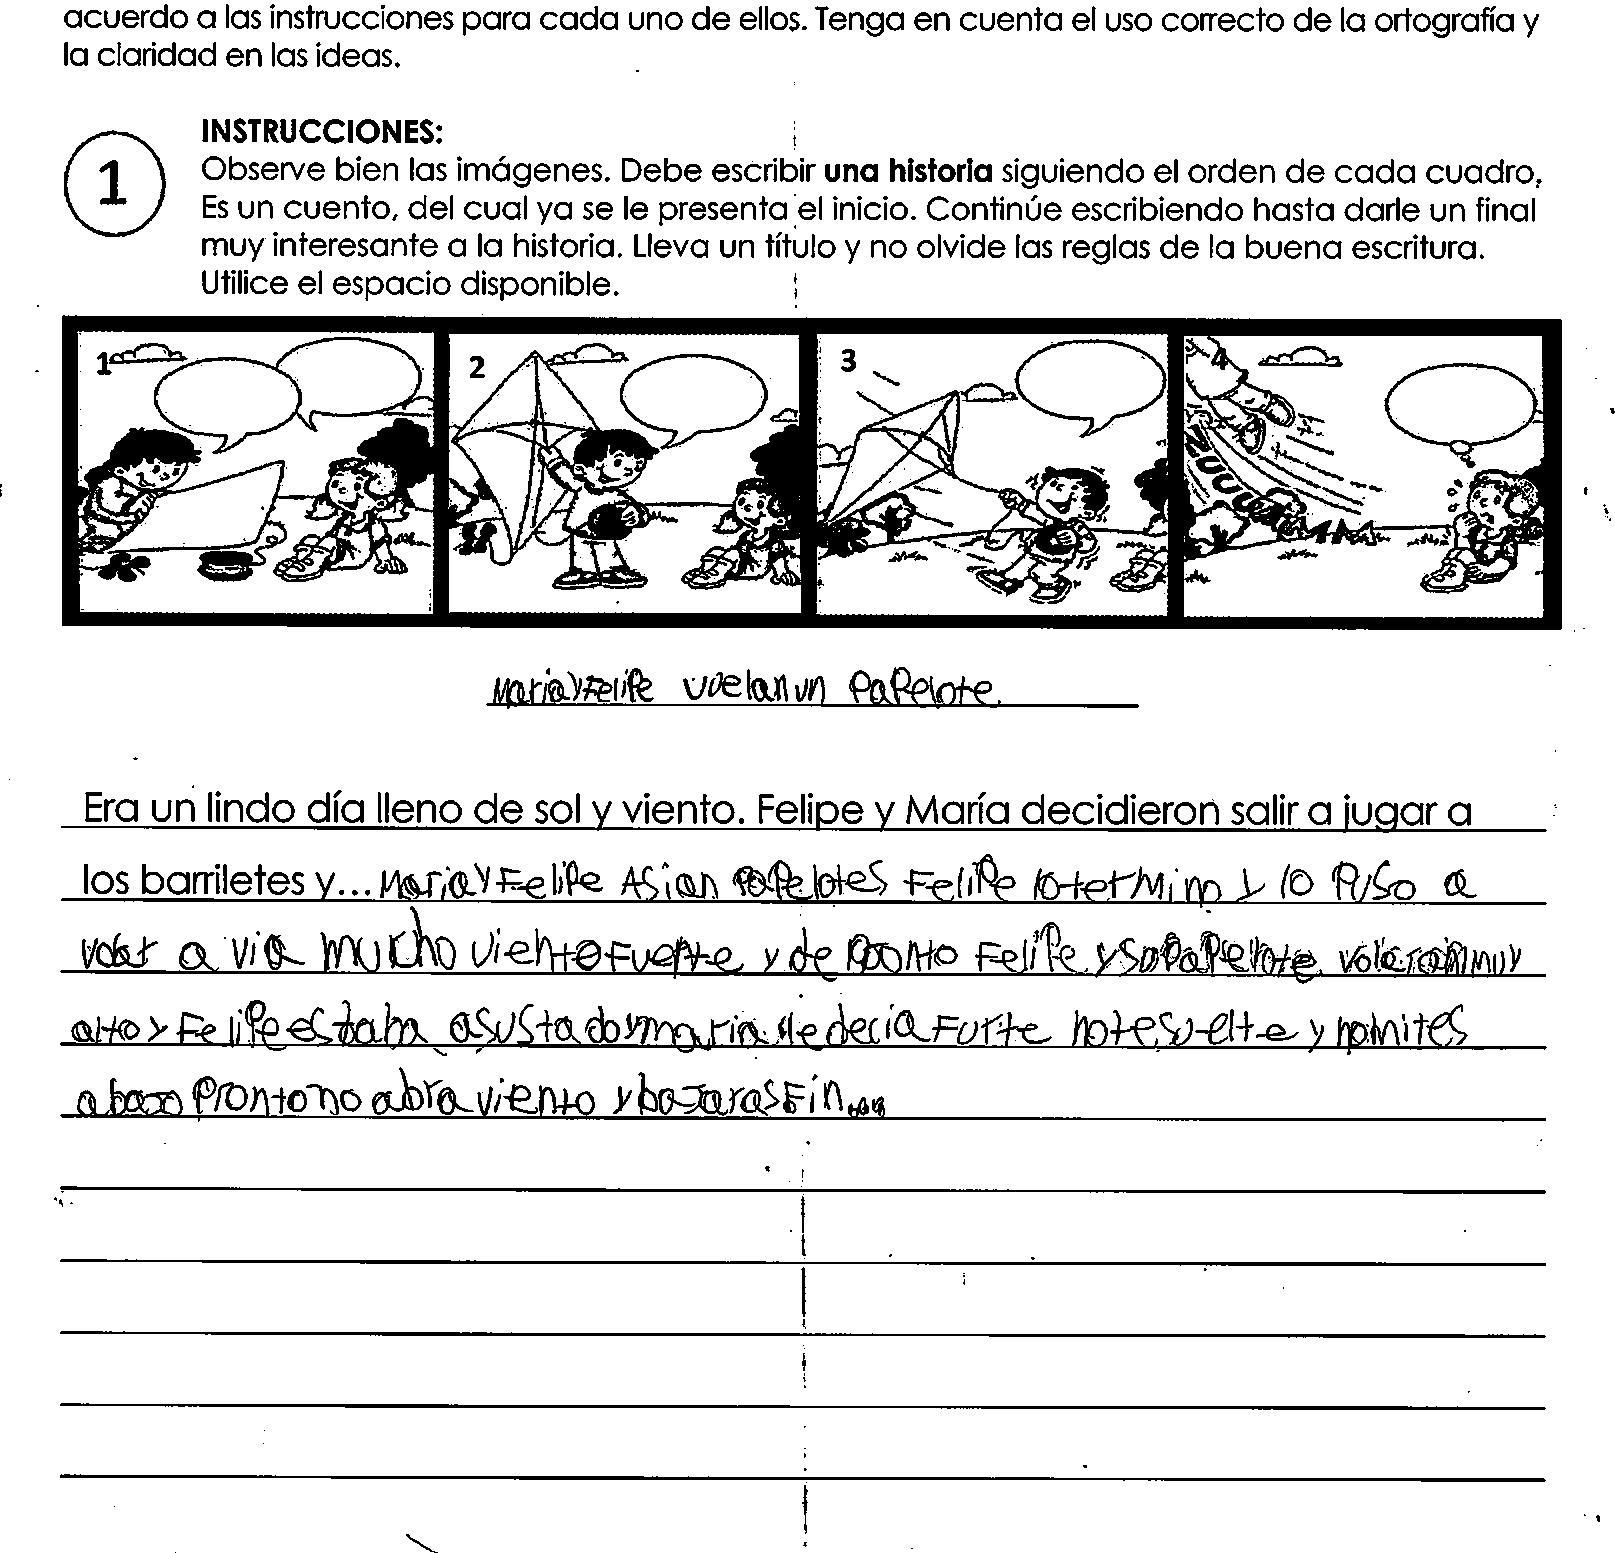 acuerdo a las instrucciones para cada uno de ellos. Tenga en cuenta el uso correcto de la ortografía y
la claridad en las ideas.
1
INSTRUCCIONES:
Observe bien las imágenes. Debe escribir una historia siguiendo el orden de cada cuadro.
Es un cuento, del cual ya se le presenta el inicio. Continúe escribiendo hasta darle un final
muy interesante a la historia. Lleva un título y no olvide las reglas de la buena escritura.
Utilice el espacio disponible.
1 2 3 4
ZUUUU
Maria y Felipe vuelan un Papelote.
Era un lindo día lleno de sol y viento. Felipe y María decidieron salir a jugar a
los barriletes y... Maria y Felipe Asian papelotes Felipe lo termino y lo puso a
volar a via mucho viento fuerte y de pronto Felipe y su papelote volaron muy
alto y Felipe estaba asustado y maria le decia Furte no te suelte y no mites
abajo Pronto no abra viento y bajaras Fin...